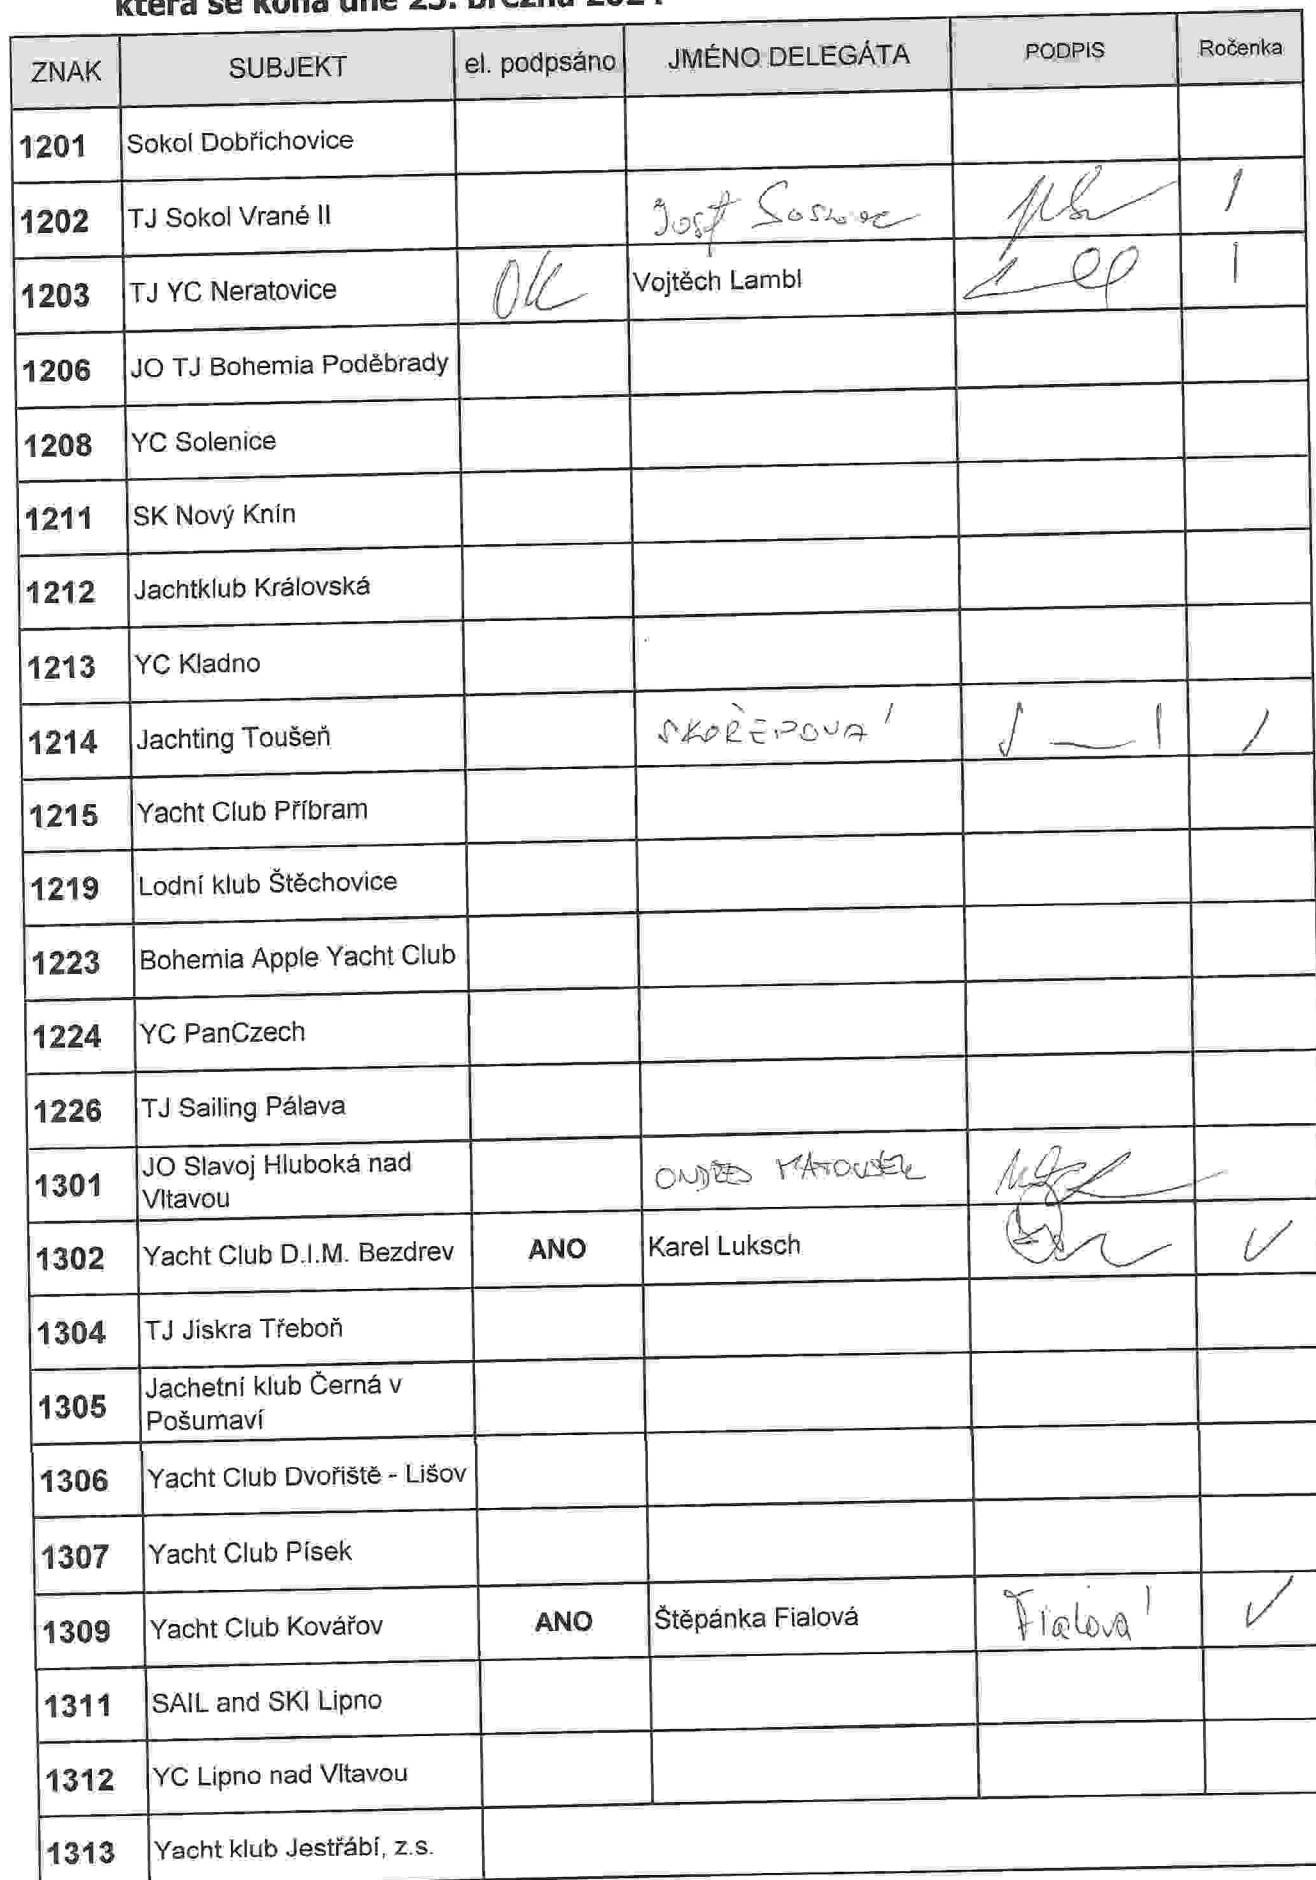 která se koná dne 23. března 2024
ZNAK SUBJEKT el. podpsáno JMÉNO DELEGÁTA PODPIS Ročenka
1201 Sokol Dobřichovice
1202 TJ Sokol Vrané II Josef
1203 TJ YC Neratovice OK Vojtěch Lambl
1206 JO TJ Bohemia Poděbrady
1208 YC Solenice
1211 SK Nový Knín
1212 Jachtklub Královská
1213 YC Kladno
1214 Jachting Toušeň SKOŘEPOVÁ
1215 Yacht Club Příbram
1219 Lodní klub Štěchovice
1223 Bohemia Apple Yacht Club
1224 YC PanCzech
1226 TJ Sailing Pálava
1301 JO Slavoj Hluboká nad
Vltavou ONDŘEJ MATOUŠEK
1302 Yacht Club D.I.M. Bezdrev ANO Karel Luksch ✓
1304 TJ Jiskra Třeboň
1305 Jachetní klub Černá v
Pošumaví
1306 Yacht Club Dvořiště - Lišov
1307 Yacht Club Písek
1309 Yacht Club Kovářov ANO Štěpánka Fialová Fialová ✓
1311 SAIL and SKI Lipno
1312 YC Lipno nad Vltavou
1313 Yacht klub Jestřábí, z.s.